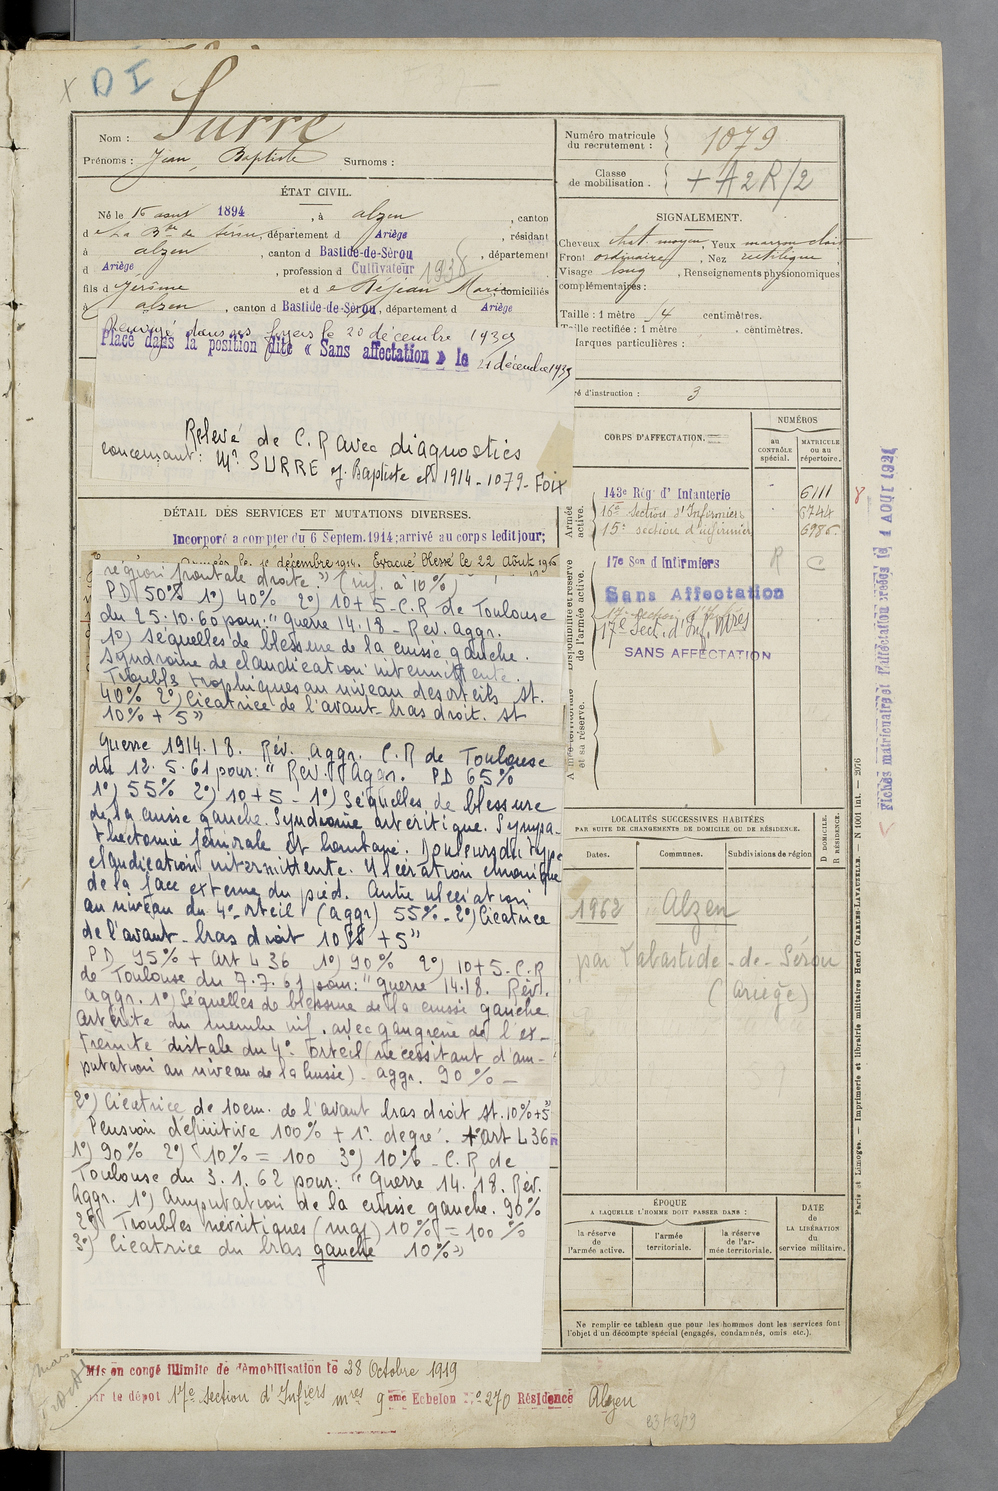 D I
Surre
Nom :
Prénoms : Jean, Baptiste Surnoms :
Numéro matricule
du recrutement :
1079
Classe
de mobilisation .
+ A 2 R/2
ÉTAT CIVIL.
Né le 15 août 1894, à alzen, canton
de La Bde de Sérou, département d Ariège, résidant
à alzen, canton d Bastide-de-Sérou, département
d Ariège, profession d Cultivateur 1938
fils d Jérôme et de Dejean Marie, domiciliés
à alzen, canton d Bastide-de-Sérou, département d Ariège
SIGNALEMENT.
Cheveux chat. moyen, Yeux marron clair
Front ordinaire, Nez rectiligne
Visage long, Renseignements physionomiques
complémentaires :
Taille : 1 mètre 54 centimètres.
Taille rectifiée : 1 mètre . centimètres.
Marques particulières :
ré d'instruction : 3
Renvoyé dans ses foyers le 20 décembre 1939
Placé dans la position dite « Sans affectation » le 21 décembre 1939
Relevé de C. R avec diagnostics
concernant : Mr SURRE J. Baptiste cl 1914 - 1079 - Foix
DÉTAIL DES SERVICES ET MUTATIONS DIVERSES.
Incorporé a compter du 6 Septem. 1914; arrivé au corps ledit jour;
décembre 1914. Evacué blessé le 22 Août 1916
région frontale droite" (inf. à 10%)
PD 50% 1°) 40% 2°) 10 + 5 - C. R de Toulouse
du 25.10.60 pour: "guerre 14.18 - Rev. aggr.
1°) Séquelles de blessure de la cuisse gauche.
Syndrome de claudication intermittente.
Troubles trophiques au niveau des orteils st.
40% 2°) Cicatrice de l'avant-bras droit. st
10% + 5"
Guerre 1914.18. Rév. aggr. C. R de Toulouse
du 12.5.61 pour: " Rev. Aggr. PD 65%
1°) 55% 2°) 10 + 5 - 1°) Séquelles de blessure
de la cuisse gauche. Syndrome artéritique. Sympa-
thectomie fémorale et lombaire. Douleurs du type
claudication intermittente. Ulcération chronique
de la face externe du pied. Autre ulcération
au niveau du 4° orteil (aggr) 55% - 2°) Cicatrice
de l'avant-bras droit 10% + 5"
PD 95% + art L 36 1°) 90% 2°) 10 + 5 - C. R
de Toulouse du 7.7.61 pour: " guerre 14.18. Rév.
aggr. 1°) Séquelles de blessure de la cuisse gauche
Artérite du membre inf. avec gangrène de l'ex-
trémité distale du 4° orteil (nécessitant d'am-
putation au niveau de la cuisse) - aggr. 90% -
2°) Cicatrice de 10 cm. de l'avant bras droit st. 10% + 5"
Pension définitive 100% + 1° degré. + art L 36
1°) 90% 2°) 10% = 100 3°) 10% - C. R de
Toulouse du 3.1.62 pour: " Guerre 14.18. Rév.
Aggr. 1°) Amputation de la cuisse gauche. 90%
2°) Troubles névritiques (moy) 10% = 100%
3°) Cicatrice du bras gauche 10% "
CORPS D'AFFECTATION.
NUMÉROS
au
CONTRÔLE
spécial.
MATRICULE
ou au
répertoire.
Armée
active.
143e Rég. d'Infanterie 6111
16e Section d'Infirmiers 6744
15e section d'infirmiers 6986
Disponibilité et réserve
de l'armée active.
17e Son d'Infirmiers R C
Sans Affectation
17e Sect. d'Inf. Mres
SANS AFFECTATION
Armée territoriale
et sa réserve.
Fiches matriculaires et d'affectation créées le 1 AOUT 1921
LOCALITÉS SUCCESSIVES HABITÉES
PAR SUITE DE CHANGEMENTS DE DOMICILE OU DE RÉSIDENCE.
D DOMICILE.
R RÉSIDENCE.
Dates.
Communes.
Subdivisions de région
1962 Alzen
par Labastide-de-Sérou
(Ariège)
ÉPOQUE
A LAQUELLE L'HOMME DOIT PASSER DANS :
la réserve
de
l'armée active.
l'armée
territoriale.
la réserve
de l'ar-
mée territoriale.
DATE
de
LA LIBÉRATION
du
service militaire.
Ne remplir ce tableau que pour les hommes dont les services font
l'objet d'un décompte spécial (engagés, condamnés, omis etc.).
Paris et Limoges. — Imprimerie et librairie militaires Henri CHARLES-LAVAUZELLE. — N 1001 int. — 2076
Mis en congé illimité de démobilisation le 28 Octobre 1919
par le dépot 17e section d'Infiers mres 9eme Echelon No 270 Résidence Alzen